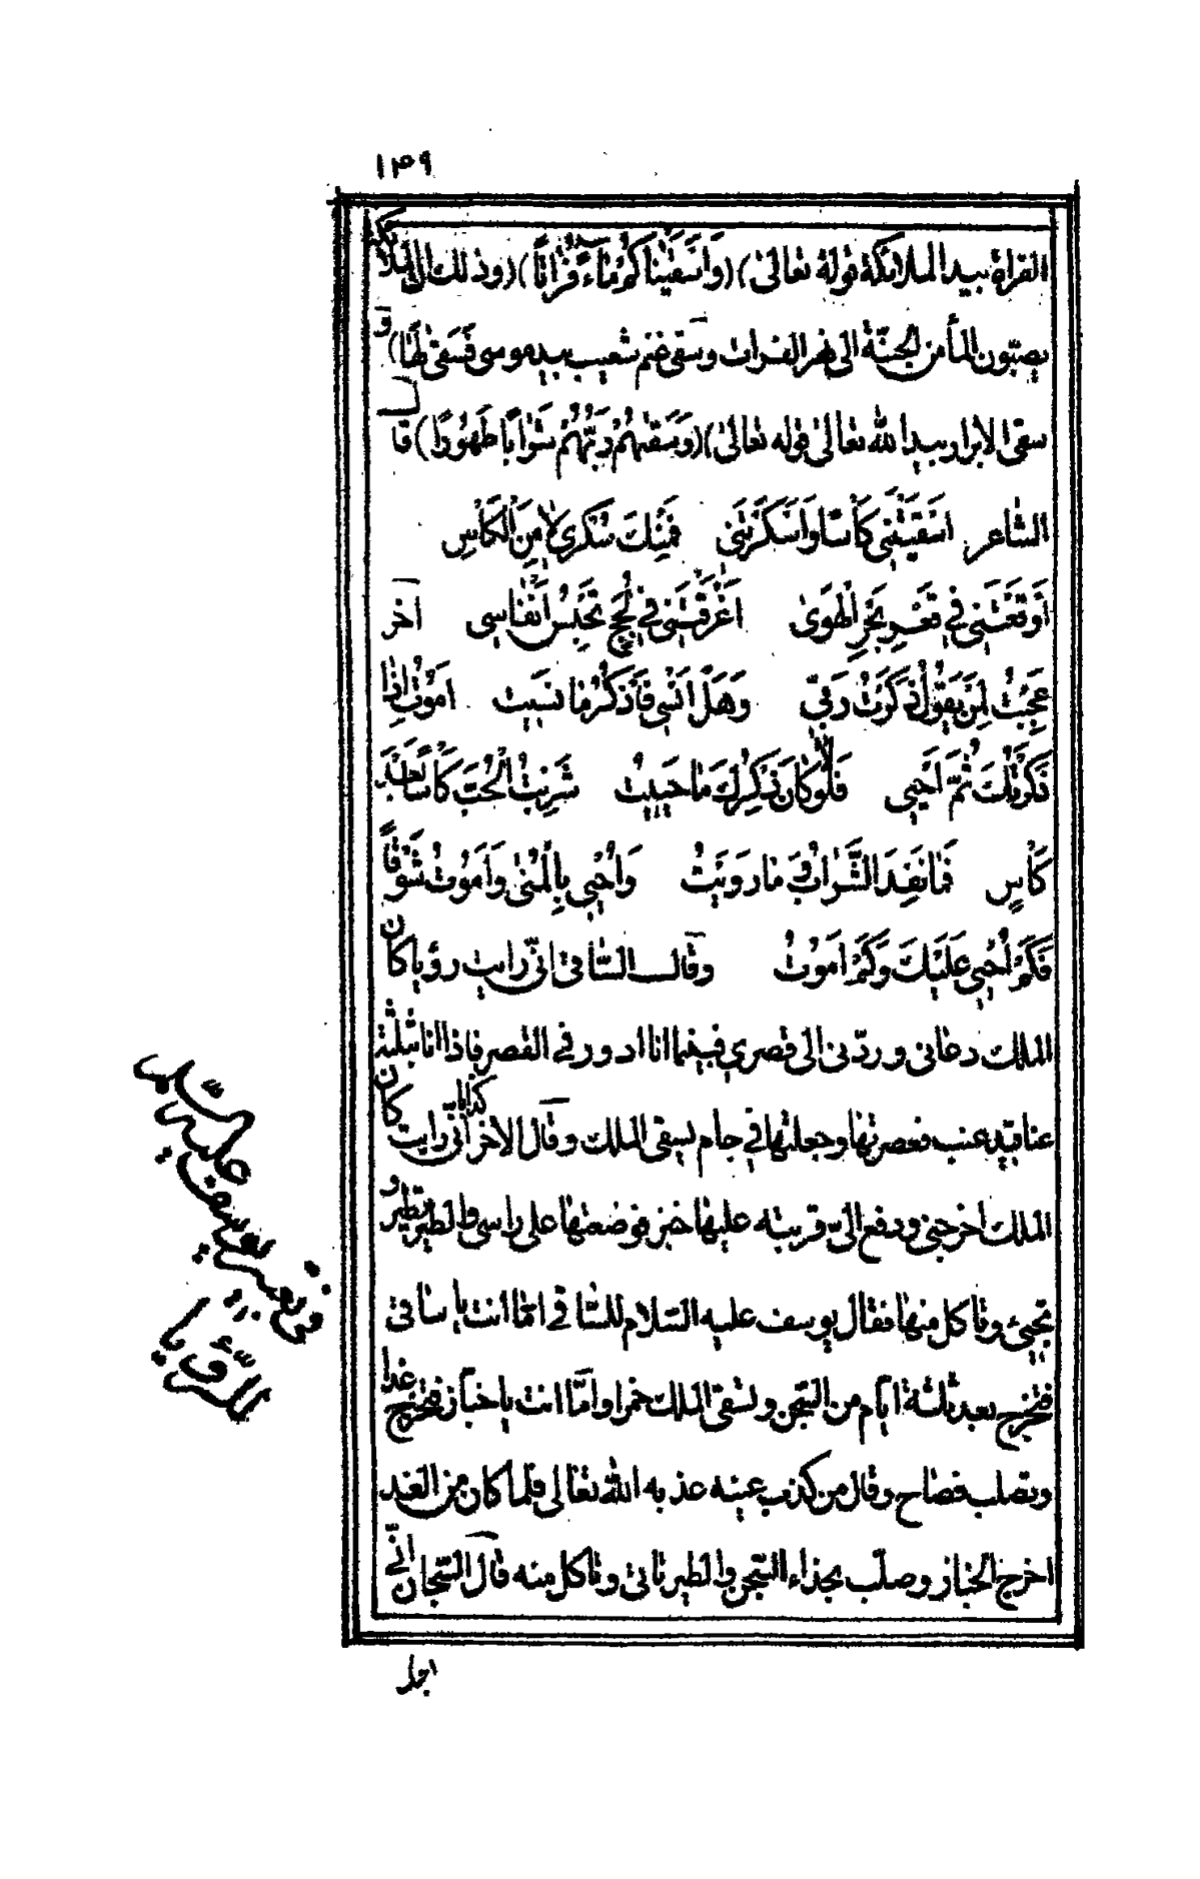 ١٤٩
الفراة بيد الملائكة قوله تعالى) (وَاَسْقَيْنَاكُمْ مَاءً فُرَاتًا) (وذلك ان الملائكة
يصبّون المأ من الجنّة الى نهر الفرات وسقى غنم شعيب بيد موسى فَسَقىٰ لَهَا) و
سقى الابرار بيد الله تعالى قوله تعالى) (وَسَقٰىهُمْ رَبُّهُمْ شَرَابًا طَهُورًا) قال
الشاعر اَسْقَيْتَنِي كَأْسًا وَاَسْكَرْتَنِي فَمِنْكَ سُكْرِي لَا مِنَ الْكَأْسِ
اَوْقَعْتَنِي فِي قَعْرِ بَحْرِ الْهَوىٰ اَغْرَقْتَنِي فِي لُجَجٍ تَحْبِسُ اَنْفَاسِي آخر
عَجِبْتُ لِمَنْ يَقُولُ ذَكَرْتُ رَبِّي وَهَلْ اَنْسٰى فَاَذْكُرُ مَا نَسِيتُ اَمُوتُ اِذَا
ذَكَرْتُكَ ثُمَّ اَحْيٰى فَلَوْلَا كَانَ ذِكْرُكَ مَا حَيِيتُ شَرِبْتُ الْحُبَّ كَأْسًا بَعْدَ
كَأْسٍ فَمَا نَفِدَ الشَّرَابُ وَمَا رَوِيْتُ وَاَحْيٰى بِالْمُنٰى وَاَمُوتُ شَوْقًا
فَكَمْ اَحْيٰى عَلَيْكَ وَكَمْ اَمُوتُ وقال السّاقى انّى رايت رؤيا كان
الملك دعانى وردّنى الى قصرى فبينما انا ادور فى القصر فاذا انا بثلثة
عناقيد عنب فعصرتها وجعلتها فى جام لسقى الملك وقال الآخر انّى رايت كان
الملك اخرجنى ودفع الىّ قريبته عليها خبز فوضعتها على راسى والطير تطير و
تجيئ وتاكل منها فقال يوسف عليه السّلام للسّاقى امّا انت يا ساقى
فتخرج بعد ثلثة ايّام من السّجن ولتسقى الملك خمرا وامّا انت يا خبّاز فتخرج غدا
وتصلب فصاح وقال من كذب عينه عذبه الله تعالى فلما كان من الغد
اخرج الخباز وصلّب بحذاء السّجن والطير تاتى وتاكل منه قال السّجان انّى
فى تعبير يوسف عليه السّلم
للرّؤيا